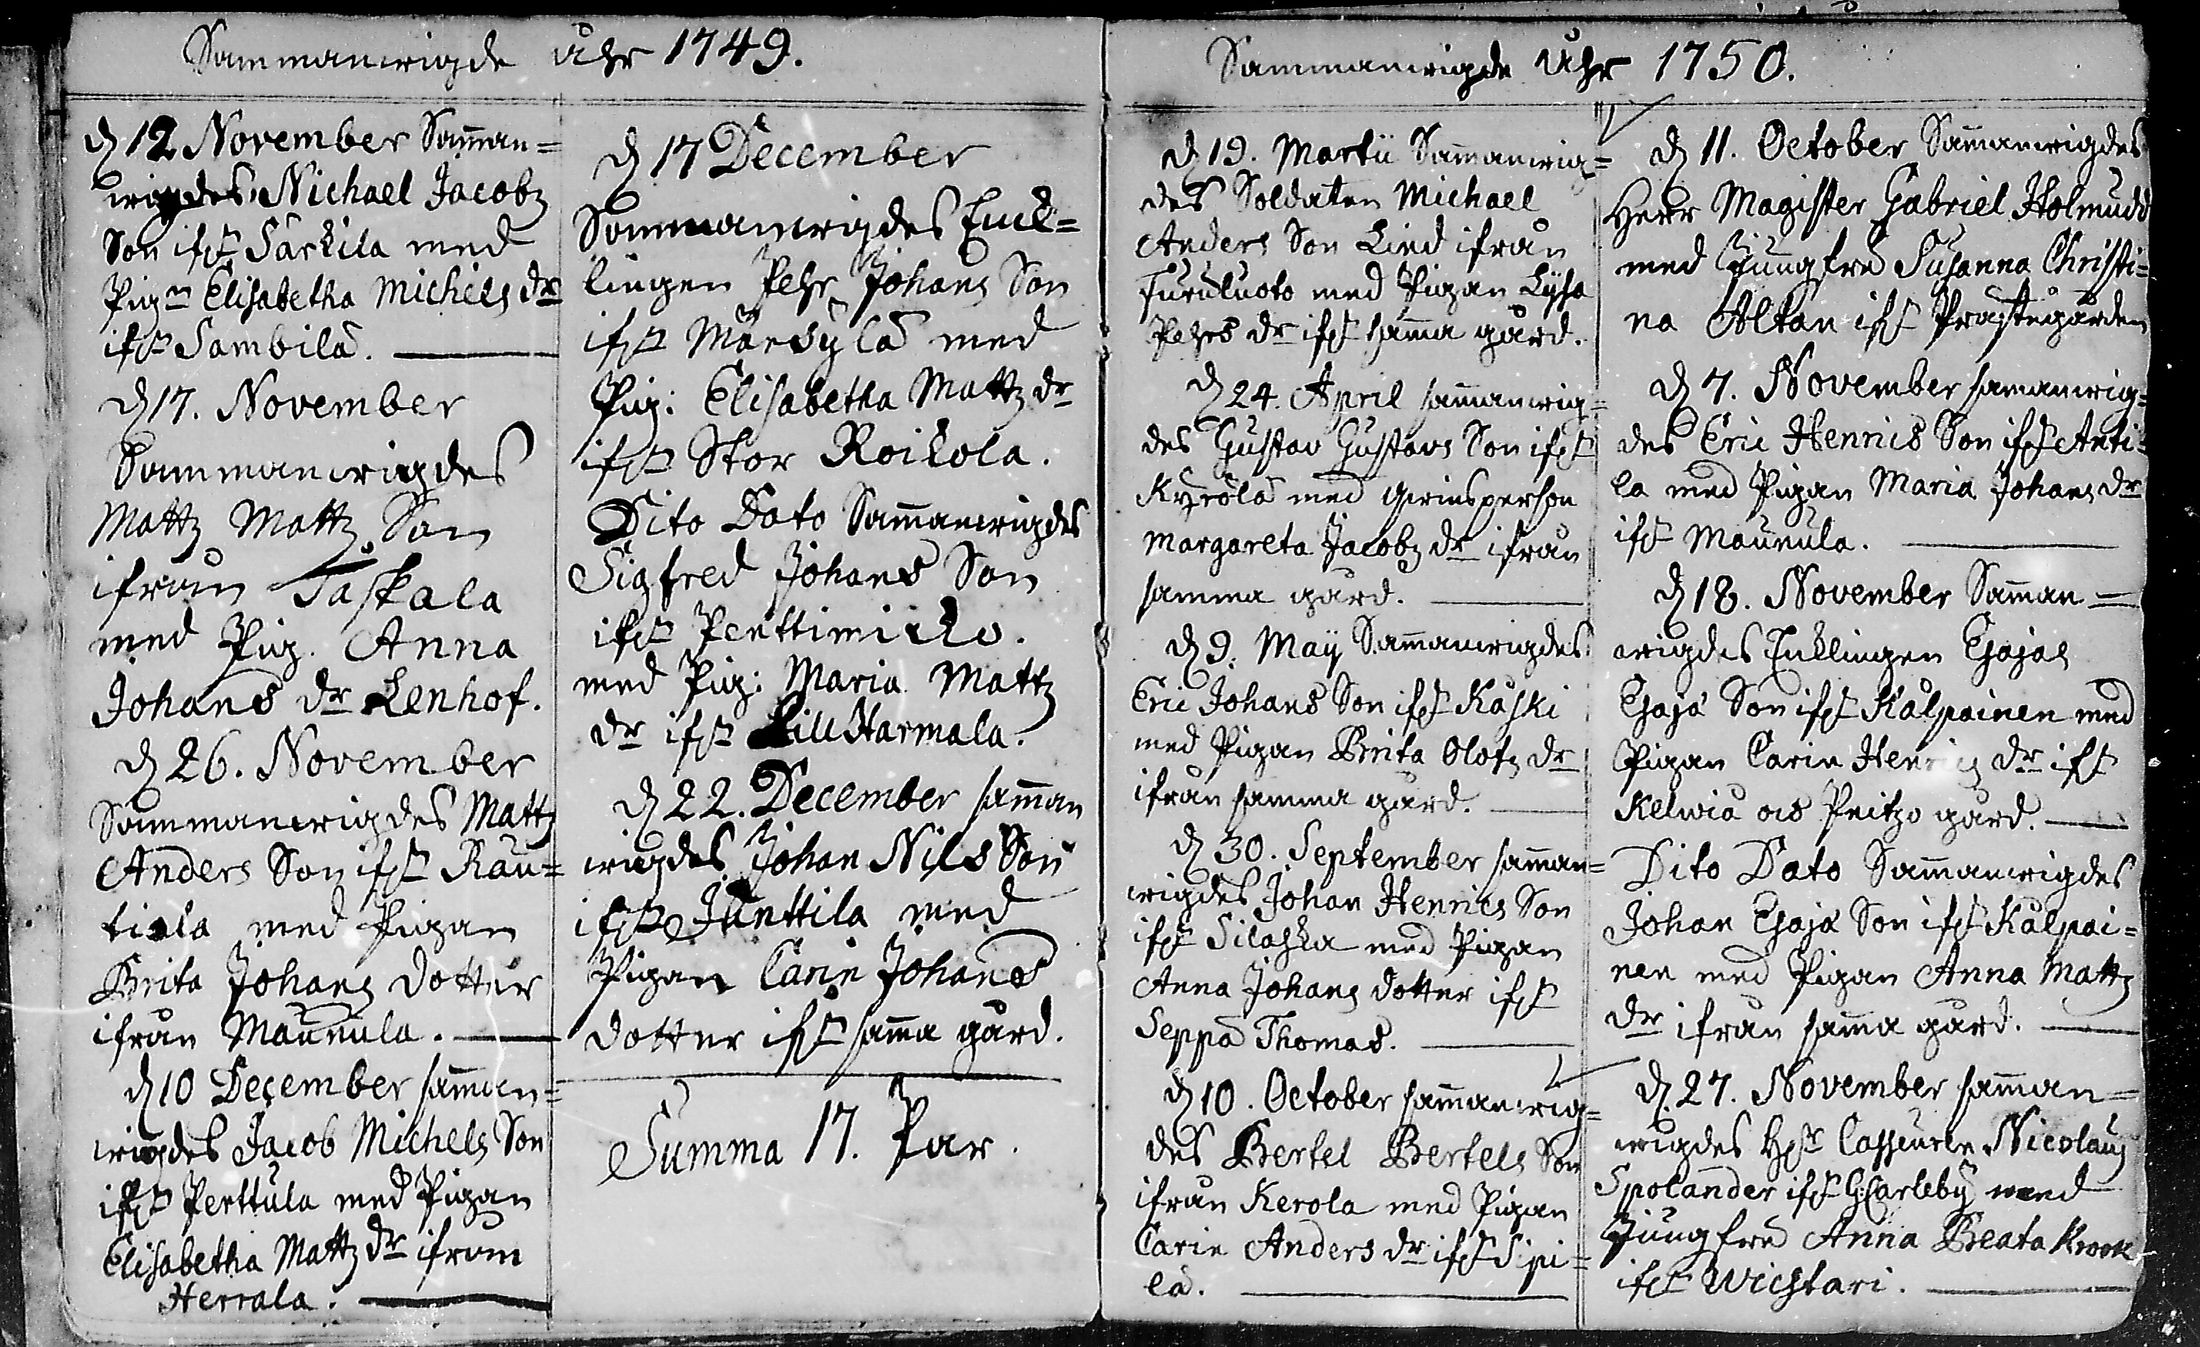 Sammanwigde åhr 1749.
d 12 November Samman=
wigdes Michael Jacobz
Son ifr Särkilä med
Pign Elisabetha Michels dr
ifr Sambila.
d 17. November
Sammanwigdes
Mattz Mattz Son
ifrån Taskala
med Pig. Anna
Johans dr Lenhof.
d 26. November
Sammanwigdes Mattz
Anders Son ifr Rau=
tiola med Pigan
Brita Johans Dotter
ifrån Maunula.
d 10 December samman=
wigdes Jacob Michels Son
ifr Perttula med Pigan
Elisabetha Mattz dr ifrån
Herrala.
d 17 December
Sammanwigdes Enck=
lingen Pehr Johans Son
ifr Märsylä med
Pig: Elisabetha Mattz dr
ifr Stor Roikola.
Dito Dato Sammanwigdes
Sigfred Johans Son
ifr Penttimicko.
med Pig: Maria Mattz
dr ifr Lill Harmala.
d 22. December samman
wigdes Johan Nils Son
ifr Junttila med
Pigan Carin Johans
dotter ifr samma gård.
Summa 17. Par.
Sammanwigde Åhr 1750.
d 19. Martii Sammanwig=
des Soldaten Michael
Anders Son Lind ifrån
Furuluoto med Pigan Lysa
Pehrs dr ifr samma gård.
d 24. April sammanwig=
des Gustav Gustavs Son ifr
Kyrölä med qwinsperson
Margareta Jacobz dr ifrån
samma gård.
d 9. Maÿ Sammanwigdes
Eric Johans Son ifr Kaski
med Pigan Brita Olofz dr
ifrån samma gård.
d 30. September samman=
wigdes Johan Henrics Son
ifr Silaska med Pigan
Anna Johans dotter ifr
Seppä Thomas.
d 10. October sammanwig=
des Bertel Bertels Son
ifrån Kerola med Pigan
Carin Anders dr ifr Sipi=
lä.
d 11. October Sammanwigdes
Herr Magister Gabriel Holmudd
med Jungfru Susanna Christi=
na Altan ifr Prästegården
d 7. November sammanwig=
des Eric Henrics Son ifr Anti=
la med Pigan Maria Johans dr
ifr Maunula.
d 18. November Samman=
wigdes Encklingen Esajas
Esajæ Son ifr Kälpäinen med
Pigan Carin Henrics dr ifr
Kelwiå och Peitzo gård.
Dito Dato Sammanwigdes
Johan Esajæ Son ifr Kälpäi=
nen med Pigan Anna Mattz
dr ifrån samma gård.
d 27. November samman=
wigdes Hr Casseuren Nicolaus
Spolander ifr G:Carleby med
Jungfru Anna Beata Krook
ifr Wichtari.